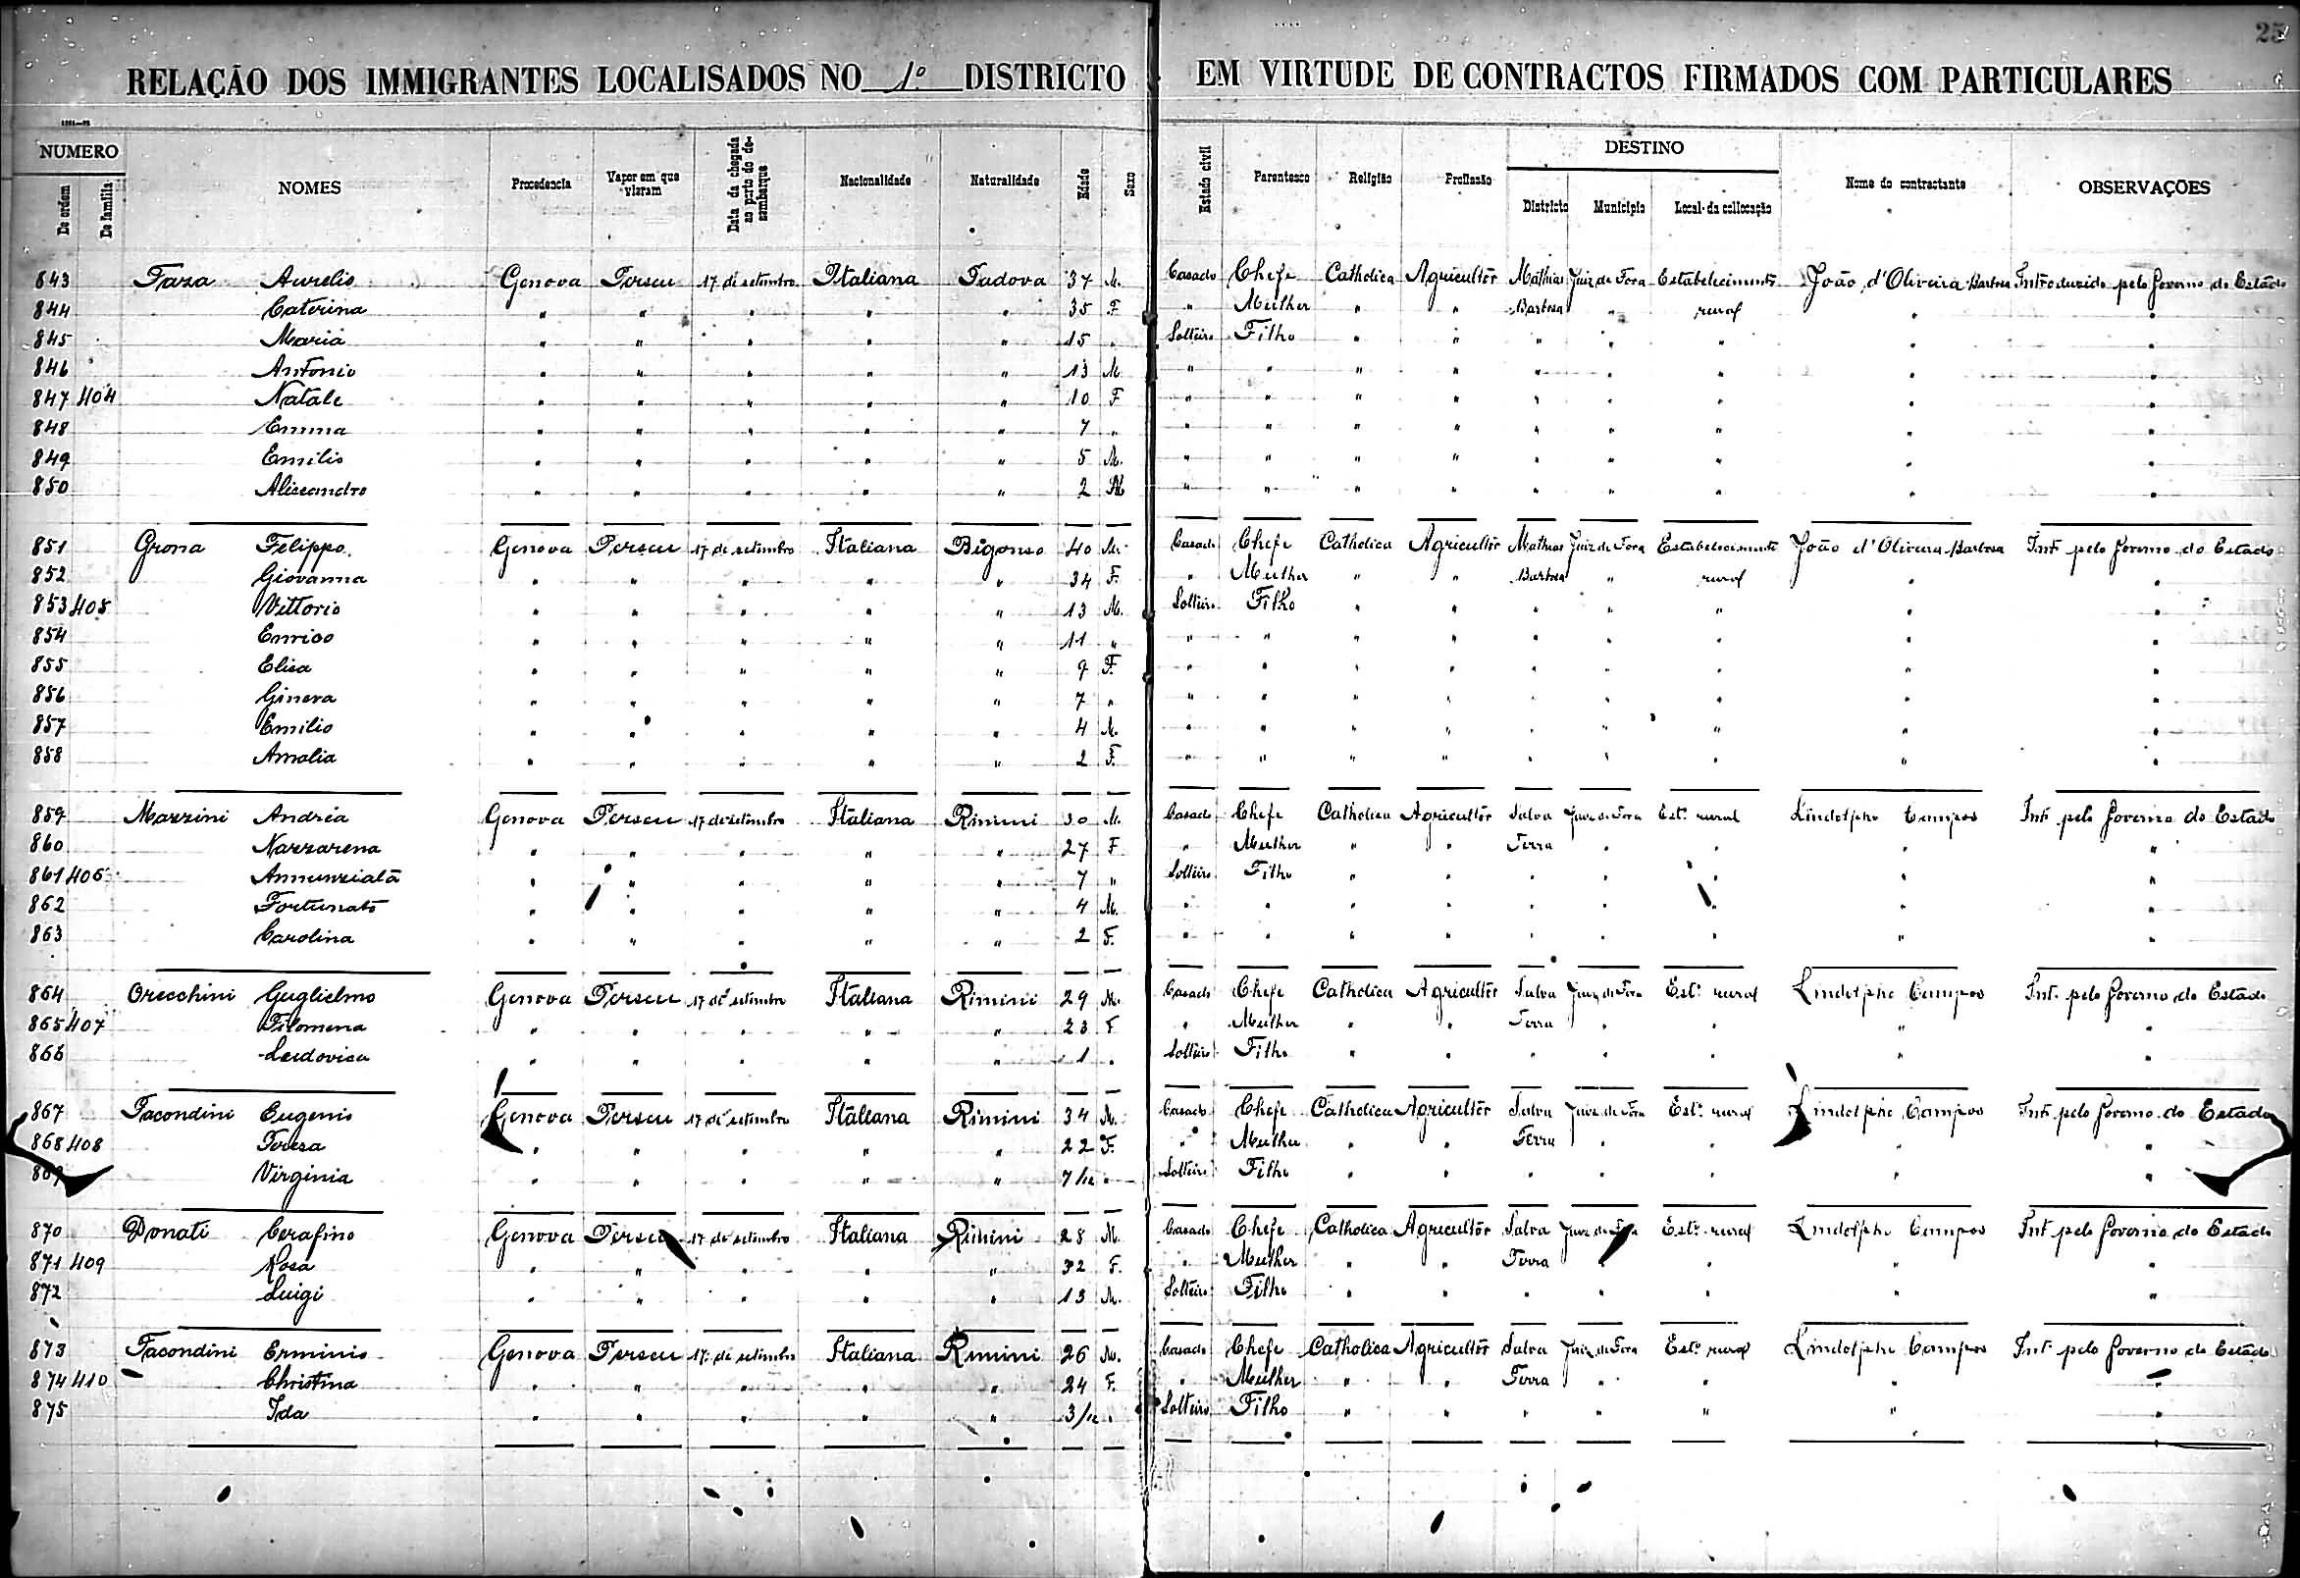 25
RELAÇÃO DOS IMMIGRANTES LOCALISADOS NO 1º DISTRICTO EM VIRTUDE DE CONTRACTOS FIRMADOS COM PARTICULARES
NUMERO De ordem De familia NOMES Procedencia Vapor em que vieram Data da chegada ao porto do desembarque Nacionalidade Naturalidade Edade Sexo Estado civil Parentesco Religião Profissão DESTINO Districto Municipio Local da collocação Nome do contractante OBSERVAÇÕES
843 Faza Aurelio Genova Perseu 17 de setembro Italiana Padova 37 M. Casado Chefe Catholica Agricultor Mathias Juiz de Fora Estabelecimento João d'Oliveira Barbosa Introduzido pelo Governo do Estado
844 Caterina " " " " " 35 F " Mulher " " Barbosa " rural " "
845 Maria " " " " " 15 " Solteiro Filho " " " " " " "
846 Antonio " " " " " 13 M " " " " " " " " "
847 404 Natale " " " " " 10 F " " " " " " " " "
848 Emma " " " " " 7 " " " " " " " " " "
849 Emilio " " " " " 5 M. " " " " " " " " "
850 Alissandro " " " " " 2 M " " " " " " " " "
851 Grona Felippo Genova Perseu 17 de setembro Italiana Bigonso 40 M. Casado Chefe Catholica Agricultor Mathias Juiz de Fora Estabelecimento João d'Oliveira Barbosa Int. pelo Governo do Estado
852 Giovanna " " " " " 34 F. " Mulher " " Barbosa " rural " "
853 405 Vittorio " " " " " 13 M. Solteiro Filho " " " " " " "
854 Enrico " " " " " 11 " " " " " " " " " "
855 Elisa " " " " " 9 F. " " " " " " " " "
856 Ginevra " " " " " 7 " " " " " " " " " "
857 Emilio " " " " " 4 M. " " " " " " " " "
858 Amalia " " " " " 2 F. " " " " " " " " "
859 Mazzini Andréa Genova Perseu 17 de setembro Italiana Rimini 30 M. Casado Chefe Catholica Agricultor Salva Juiz de Fora Est.º rural Lindolpho Campos Int. pelo Governo do Estado
860 Nazzarena " " " " " 27 F " Mulher " " Terra " " " "
861 406 Annunziata " " " " " 7 " Solteiro Filho " " " " " " "
862 Fortunato " " " " " 4 M. " " " " " " " " "
863 Carolina " " " " " 2 F. " " " " " " " " "
864 Orecchini Guglielmo Genova Perseu 17 de setembro Italiana Rimini 29 M. Casado Chefe Catholica Agricultor Salva Juiz de Fora Est.º rural Lindolpho Campos Int. pelo Governo do Estado
865 407 Filomena " " " " " 23 F " Mulher " " Terra " " " "
866 Ludovica " " " " " 1 " Solteiro Filho " " " " " " "
867 Facondini Eugenio Genova Perseu 17 de setembro Italiana Rimini 34 M. Casado Chefe Catholica Agricultor Salva Juiz de Fora Est.º rural Lindolpho Campos Int. pelo Governo do Estado
868 408 Teresa " " " " " 22 F. " Mulher " " Terra " " " "
869 Virginia " " " " " 7/12 " Solteiro Filho " " " " " " "
870 Donati Cerafino Genova Perseu 17 de setembro Italiana Rimini 28 M. Casado Chefe Catholica Agricultor Salva Juiz de Fora Est.º rural Lindolpho Campos Int. pelo Governo do Estado
871 409 Rosa " " " " " 32 F. " Mulher " " Terra " " " "
872 Luigi " " " " " 13 M. Solteiro Filho " " " " " " "
873 Facondini Erminio Genova Perseu 17 de setembro Italiana Rimini 26 M. Casado Chefe Catholica Agricultor Salva Juiz de Fora Est.º rural Lindolpho Campos Int. pelo Governo do Estado
874 410 Christina " " " " " 24 F. " Mulher " " Terra " " " "
875 Ida " " " " " 3/12 " Solteiro Filho " " " " " " "